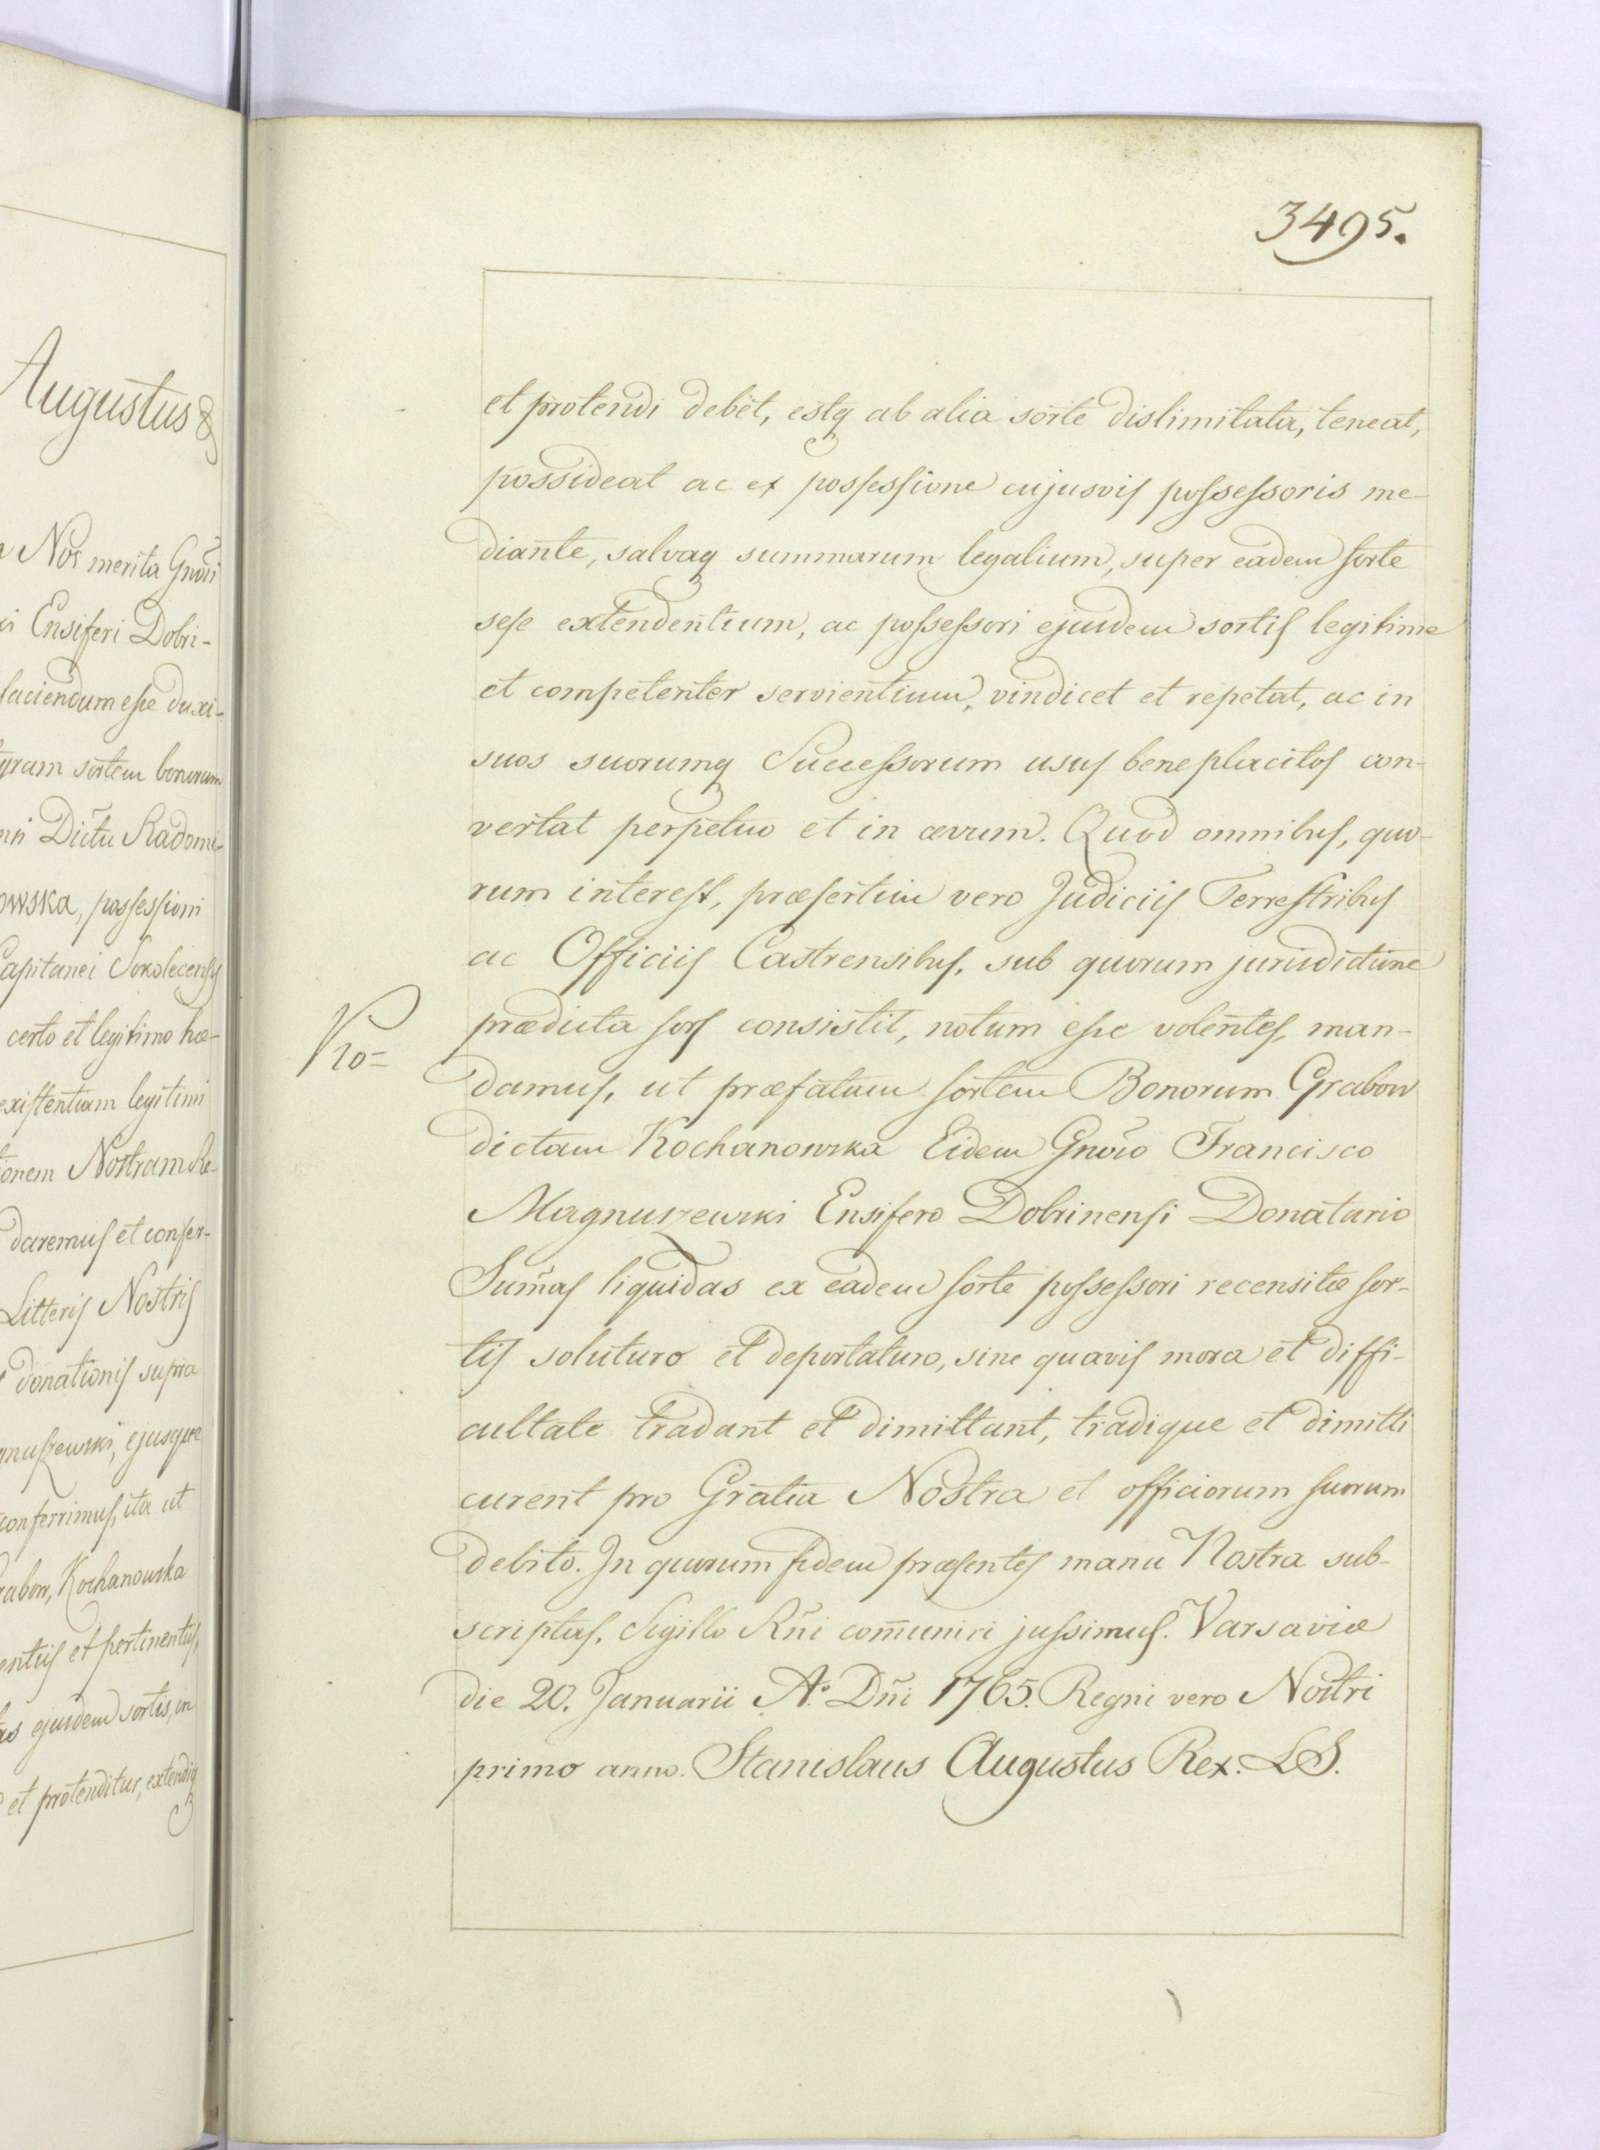 Augustus &
Nos merita Gnōsi
Ensiferi Dobri-
faciendum esse duxi-
sortem bonorum
Dictu Radomi-
possessioni
Capitanei Sokolecensis
certo et legitimo hæ-
existentiam legitimi
Nostram Re-
daremus et confer-
Litteris Nostris
donationis supra
ejusque
conferrimus, ita ut
Kochanowska
et pertinentiis,
ejusdem sortis, in
et protenditur, extendiq
3495.
et protendi debet, estq ab alia sorte dislimitata, teneat,
possideat ac ex possessione cujusvis possessoris me-
diante, salvaq summarum legalium, super eadem sorte
sese extendentium, ac possessori ejusdem sortis legitime
et competenter servientium, vindicet et repetat, ac in
suos suorumq Successorum usus beneplacitos con-
vertat perpetuo et in ævum. Quod omnibus, quo-
rum interest, præsertim vero Judiciis Terrestribus
ac Officiis Castrensibus, sub quorum jurisdictione
prædicta sors consistit, notum esse volentes, man-
damus, ut præfatam sortem Bonorum Grabow
dictam Kochanowska Eidem Gnōso Francisco
Magnuszewski Ensifero Dobrinensi Donatario
Sum̄as liquidas ex eadem sorte possessori recensitæ sor-
tis soluturo et deportaturo, sine quavis mora et diffi-
cultate tradant et dimittant, tradique et dimitti
curent pro Gratia Nostra et officiorum suorum
debito. In quorum fidem præsentes manu Nostra sub-
scriptas, Sigillo Rn̄i com̄uniri jussimus. Varsaviæ
die 20. Januarii A.º Dn̄i 1765. Regni vero Nostri
primo anno. Stanislaus Augustus Rex. L.S.